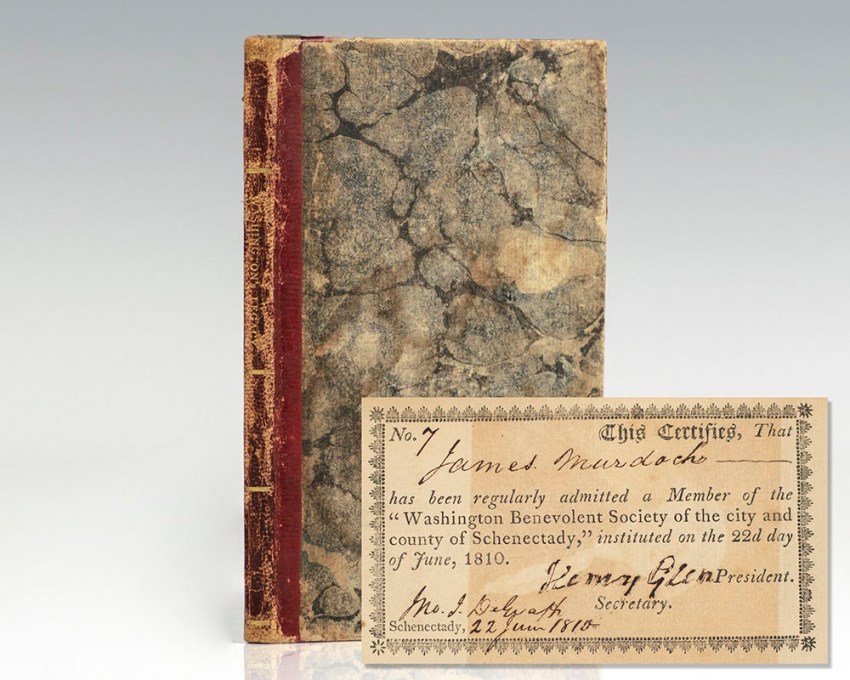 WASHINGTON'S
No. 7 This Certifies, That
James Murdoch
has been regularly admitted a Member of the
“Washington Benevolent Society of the city and
county of Schenectady,” instituted on the 22d day
of June, 1810.
Henry Glen President.
Jno. I. DeGraff Secretary.
Schenectady, 22 June 1810